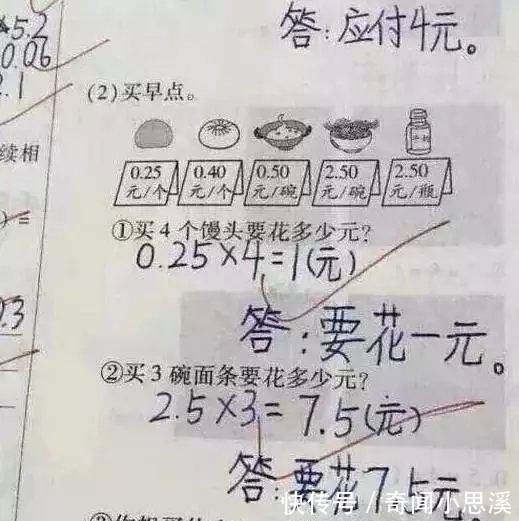 ×5.2
0.06
2.1
答:应付4元。
(2)买早点。
续相
0.25 0.40 0.50 2.50 2.50
元/个 元/个 元/碗 元/碗 元/瓶
①买4个馒头要花多少元?
) =
0.25×4=1(元)
0.3
答:要花一元。
②买3碗面条要花多少元?
2.5×3=7.5(元)
答:要花7.5元
快传号/奇闻小思溪